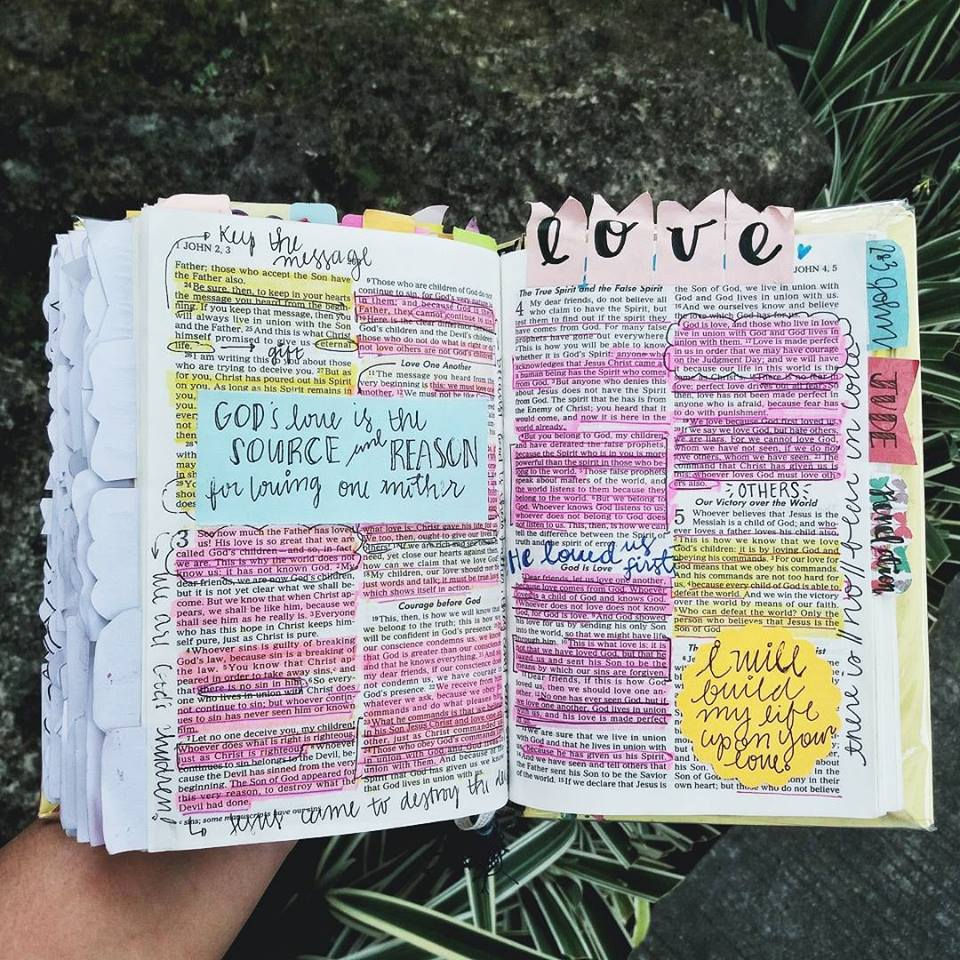 Keep the
message
1 JOHN 2, 3
Father; those who accept the Son have
the Father also.
24 Be sure, then, to keep in your hearts
the message you heard from the
ning. If you keep that message, then you
will always live in union with the Son
and the Father. 25 And this is what Christ
himself promised to give us eternal
life.
gift
26 I am writing this you about those
who are trying to deceive you. 27 But as
for you, Christ has poured out his Spirit
on you. As long as his Spirit remains in
GOD's love is the
SOURCE and REASON
for loving one another
3 See how much the Father has loved
us! His love is so great that we are
called God's children—and so, in fact,
we are. This is why the world does not
know us; it has not known God. 2 My
dear friends, we are now God's children,
but it is not yet clear what we shall be-
come. But we know when Christ ap-
pears, we shall be like him, because we
shall see him as he really is. 3 Everyone
who has this hope in Christ keeps him-
self pure, just as Christ is pure.
4 Whoever sins is guilty of breaking
God's law, because sin is a breaking of
the law. 5 You know that Christ ap-
peared in order to take away sins, and
that there is no sin in him. 6 So every-
one who lives in union with Christ does
not continue to sin; but whoever contin-
ues to sin has never seen him or known
him.
7 Let no one deceive you, my children!
Whoever does what is right is righteous,
just as Christ is righteous. 8 Whoever
continues to sin belongs to the Devil, be-
cause the Devil has sinned from the very
The Son of God appeared for
this very reason, to destroy what the
Devil had done.
sins; some manuscripts have our sins.
Jesus came to destroy the
We are God's children!
9 Those who are children of God do not
continue to sin, for God's very nature is
in them; and because God is their
Father, they cannot continue to sin.
10 Here is the clear difference between
God's children and the Devil's children:
those who do not do what is right or do
not love others are not God's children.
Love One Another
11 The message you heard from the
very beginning is this: we must love one
another. 12 We must not be like
what love is: Christ gave his life for
us. We too, then, ought to give our lives
others!
need, yet close our hearts against them,
how can we claim that we love God?
18 My children, our love should not be
words and talk; it must be true love,
which shows itself in action.
Courage before God
19 This, then, is how we will know that
we belong to the truth; this is how we
will be confident in God's presence.
conscience condemns us, we know
that God is greater than our conscience
and that he knows everything.
my dear friends, if our conscience does
not condemn us, we have courage in
God's presence. 22 We receive from him
whatever we ask, because we obey his
commands and do what pleases him.
What he commands is that we believe
in his Son Jesus Christ and love one an-
other, just as Christ commanded us.
Those who obey God's commands live
in union with God and God lives in
union with them. And because of the
Spirit that God has given us we know
that God lives in union with us.
love
The True Spirit and the False Spirit
4 My dear friends, do not believe all
who claim to have the Spirit, but
test them to find out if the spirit they
have comes from God. For many false
prophets have gone out everywhere.
2 This is how you will be able to know
whether it is God's Spirit: anyone who
acknowledges that Jesus Christ came as
a human being has the Spirit who comes
from God. 3 But anyone who denies this
about Jesus does not have the Spirit
from God. The spirit that he has is from
the Enemy of Christ; you heard that it
would come, and now it is here in the
world already.
4 But you belong to God, my children,
and have defeated the false prophets,
because the Spirit who is in you is more
powerful than the spirit in those who be-
long to the world. 5 Those false prophets
speak about matters of the world, and
the world listens to them because they
belong to the world. 6 But we belong to
God. Whoever knows God listens to us;
whoever does not belong to God does
not listen to us. This, then, is how we can
tell the difference between the Spirit of
truth and the spirit of error.
He loved us
first
God Is Love
7 Dear friends, let us love one another,
because love comes from God. Whoever
loves is a child of God and knows God.
8 Whoever does not love does not know
God, for God is love. 9 And God showed
his love for us by sending his only Son
into the world, so that we might have life
through him. 10 This is what love is: it is
not that we have loved God, but that he
loved us and sent his Son to be the
means by which our sins are forgiven.
11 Dear friends, if this is how God
loved us, then we should love one an-
other. 12 No one has ever seen God, but if
we love one another, God lives in union
with us, and his love is made perfect
in us.
13 We are sure that we live in union
with God and that he lives in union with
us, because he has given us his Spirit.
14 And we have seen and tell others that
the Father sent his Son to be the Savior
of the world. 15 If we declare that Jesus is
JOHN 4, 5
the Son of God, we live in union with
God and God lives in union with us.
16 And we ourselves know and believe
the love which God has for us.
God is love, and those who live in love
live in union with God and God lives in
union with them. 17 Love is made perfect
in us in order that we may have courage
on the Judgment Day; and we will have
it because our life in this world is the
same as Christ's. 18 There is no fear in
love; perfect love drives out all fear.
then, love has not been made perfect in
anyone who is afraid, because fear has
to do with punishment.
19 We love because God first loved us.
20 If we say we love God, but hate others,
we are liars. For we cannot love God,
whom we have not seen, if we do not
love others, whom we have seen. 21 The
command that Christ has given us is
this: whoever loves God must love oth-
ers also.
OTHERS
Our Victory over the World
5 Whoever believes that Jesus is the
Messiah is a child of God; and who-
ever loves a father loves his child also.
2 This is how we know that we love
God's children: it is by loving God and
obeying his commands. 3 For our love for
God means that we obey his commands.
And his commands are not too hard for
us, 4 because every child of God is able to
defeat the world. And we win the victory
over the world by means of our faith.
5 Who can defeat the world? Only the
person who believes that Jesus is the
Son of God.
I will
build
my life
upon your
love.
their
own heart; but those who do not believe
there is // no // fear in love
2&3 John
JUDE
Revelation